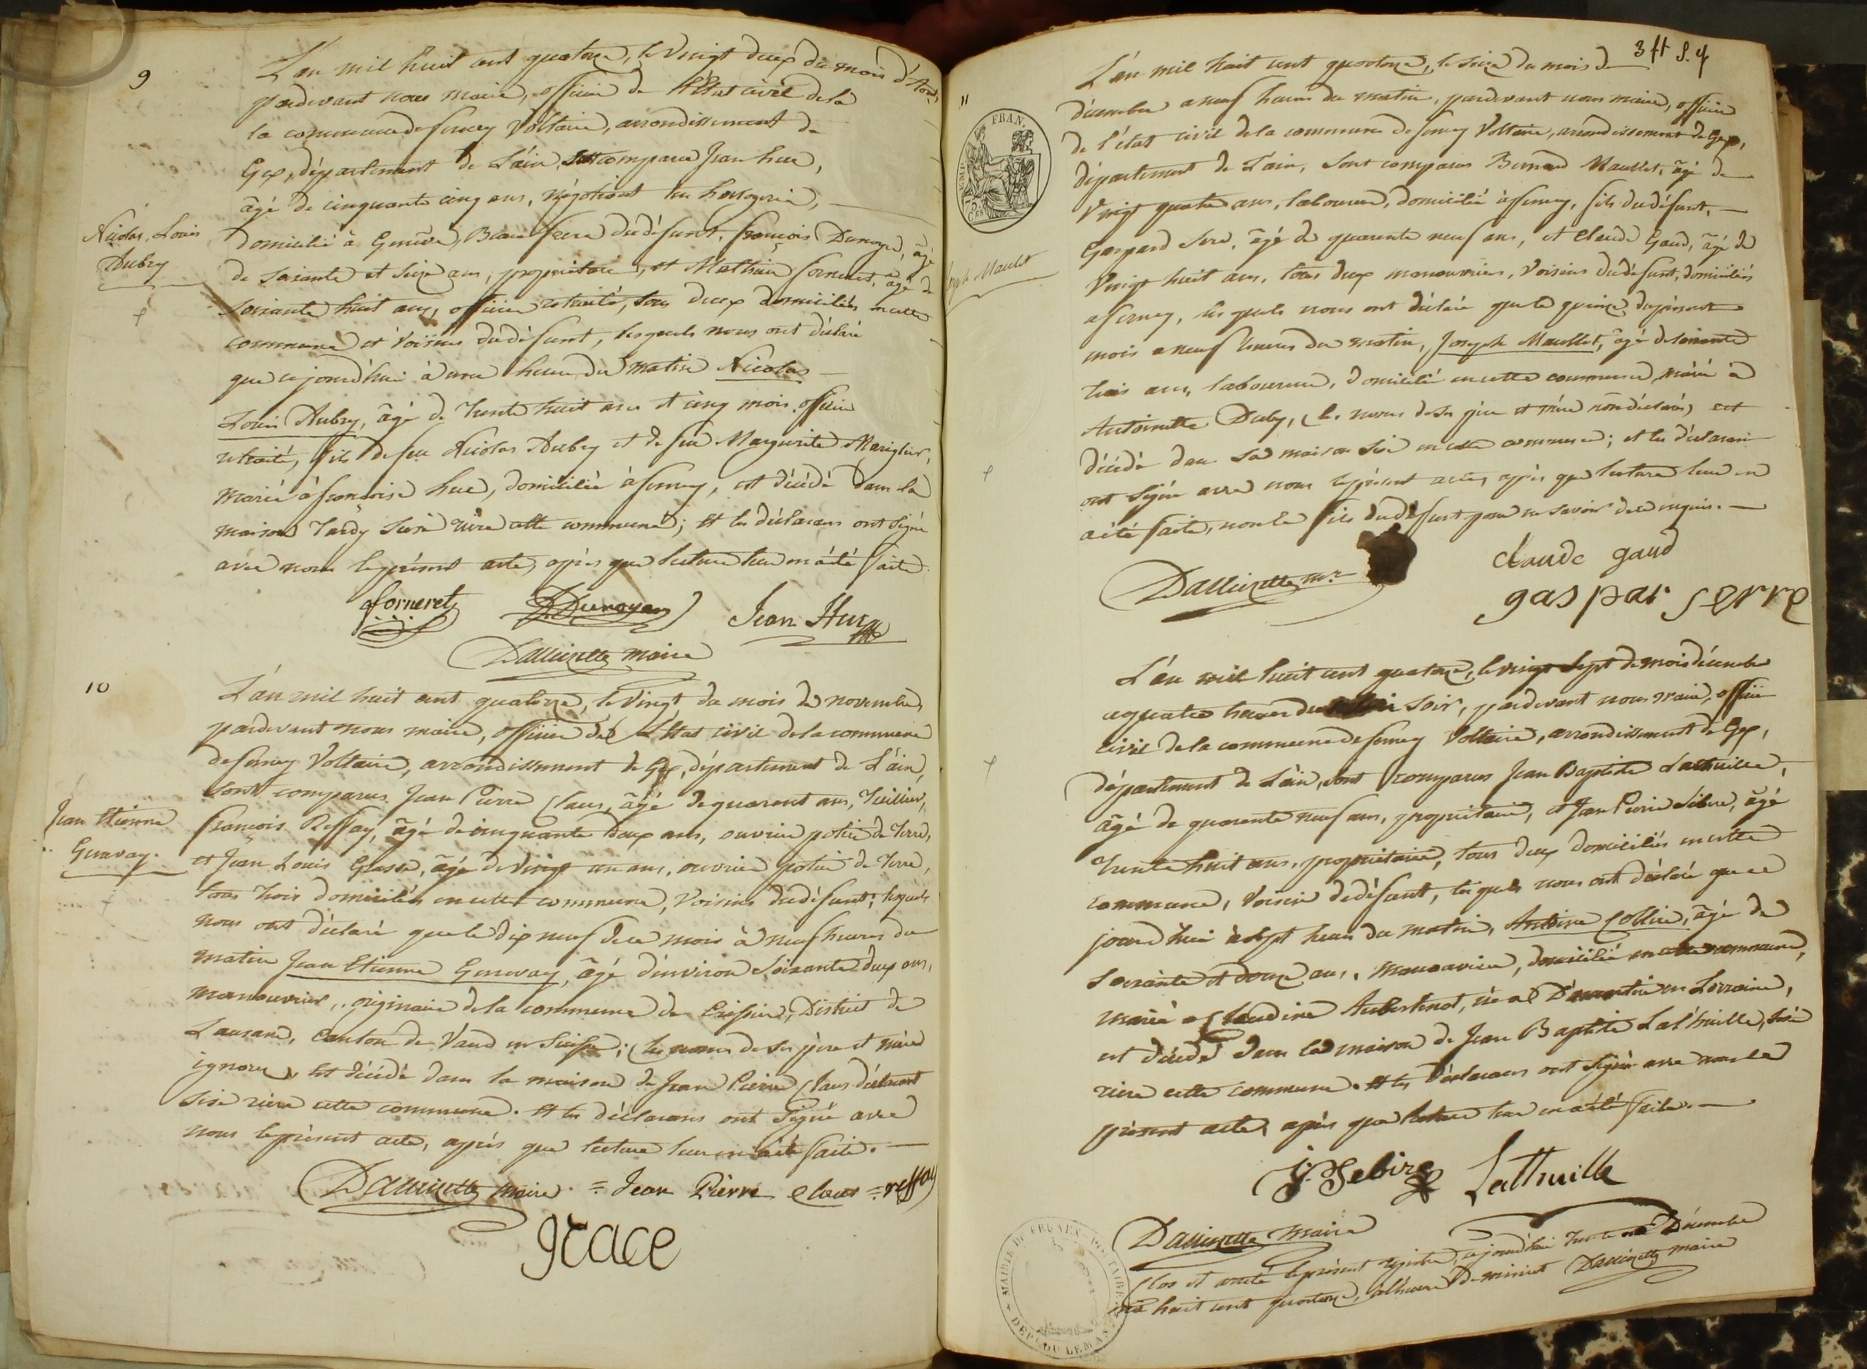 9
L'an mil huit cent quatorze, le vingt deux du mois d'Aout
pardevant nous maire, officier de l'Etat civil de la
la commune de ferney Voltaire, arrondissement de
Gex, département de l'ain, sont comparu Jean hue,
âgé de cinquante cinq ans, Négotiant en horlogerie,
domicilié à Genève, Beaufrere du défunt, françois Dunoyer, âgé
de soixante et seize ans, propriétaire, et Mathieu forneret, âgé de
soixante huit ans, officier retraité, tous deux domiciliés en cette
commune et Voisins du défunt, lesquels nous ont déclaré
que cejourd'hui à une heure du matin Nicolas
Louis Aubry, âgé de trente huit ans et cinq mois, officier
retraité, fils de feu Nicolas Aubry et de feu Marguerite
marié à françoise hue, domicilié à ferney, est décédé dans la
maison Tardy sise rière cette commune; et les déclarans ont signé
avec nous le présent acte, après que lecture leur en a été faite.
Nicolas Louis
Aubry
forneret Dunoyer Jean Hue
maire
10
L'an mil huit cent quatorze, le vingt du mois de novembre,
pardevant nous maire, officier de l'Etat civil de la commune
de ferney Voltaire, arrondissement de Gex, département de l'ain,
sont comparus Jean Pierre Claus, âgé de quarente ans, tuillier,
françois Reffay, âgé de cinquante deux ans, ouvrier potier de terre,
et Jean Louis Grasse, âgé de vingt un ans, ouvrier potier de terre,
tous trois domiciliés en cette commune, Voisins du défunt; lesquels
nous ont déclaré que le dix neuf de ce mois à neuf heures du
matin Jean Etienne Genevay, âgé d'environ soixante deux ans,
manouvrier, originaire de la commune de District de
Lausane, Canton de Vaud en Suisse; les noms de ses père et mère
ignorés, est décédé dans la maison de Jean Pierre Claus déclarant
sise rière cette commune. Et les déclarans ont signé avec
nous le présent acte, après que lecture leur en a été faite.
Jean Etienne
Genevay
maire = Jean Pierre Claus = reffay
grace
3 ft S. 4
11
L'an mil huit cent quatorze, le seize du mois de
décembre a neuf heures du matin, pardevant nous maire, officier
de l'état civil de la commune de ferney Voltaire, arrondissement de Gex,
département de l'ain, sont comparus Bernard Maullet, âgé de
vingt quatre ans, laboureur, domicilié à ferney, fils du défunt,
Gaspard Sere, âgé de quarente neuf ans, et Claude Gaud, âgé de
vingt huit ans, tous deux manouvriers, voisins du défunt, domiciliés
a ferney, lesquels nous ont déclaré que le quinze du présent
mois a neuf heures du matin, Joseph Maullet, âgé de soixante
trois ans, laboureur, domicilié en cette commune, marié à
Antoinette Duby, (les noms de ses père et mère non déclarés) est
décédé dans sa maison sise en cette commune; et les déclarans
ont signé avec nous le présent acte, après que lecture leur en
a été faite, non le fils du défunt pour ne savoir de ce enquis.
Maulet
FRAN.
maire
claude gaud
gaspar serre
L'an mil huit cent quatorze, le vingt sept du mois décembre
a quatre heures du soir, pardevant nous maire, officier
civil de la commune de ferney Voltaire, arrondissement de Gex,
département de l'ain, sont comparus Jean Baptiste Lathuille,
âgé de quarente neuf ans, propriétaire, et Jean Pierre Sebire, âgé
trente huit ans, propriétaire, tous deux domiciliés en cette
commune, voisins du défunt, lesquels nous ont déclaré que ce
jourd'hui à sept heures du matin, Antoine Collin, âgé de
soixante et douze ans, manouvrier, domicilié en cette commune,
marié a Claudine né a en Lorraine,
est décédé dans la maison de Jean Baptiste Lathuille, sise
rière cette commune. Et les déclarans ont signé avec nous le
présent acte, après que lecture leur en a été faite.
Sebire Lathuille
maire
Clos et arreté le présent registre, ce jourd'hui trente un Décembre
mil huit cent quatorze, à l'heure de minuit maire
MAIRIE DE FERNEY VOLTAIRE